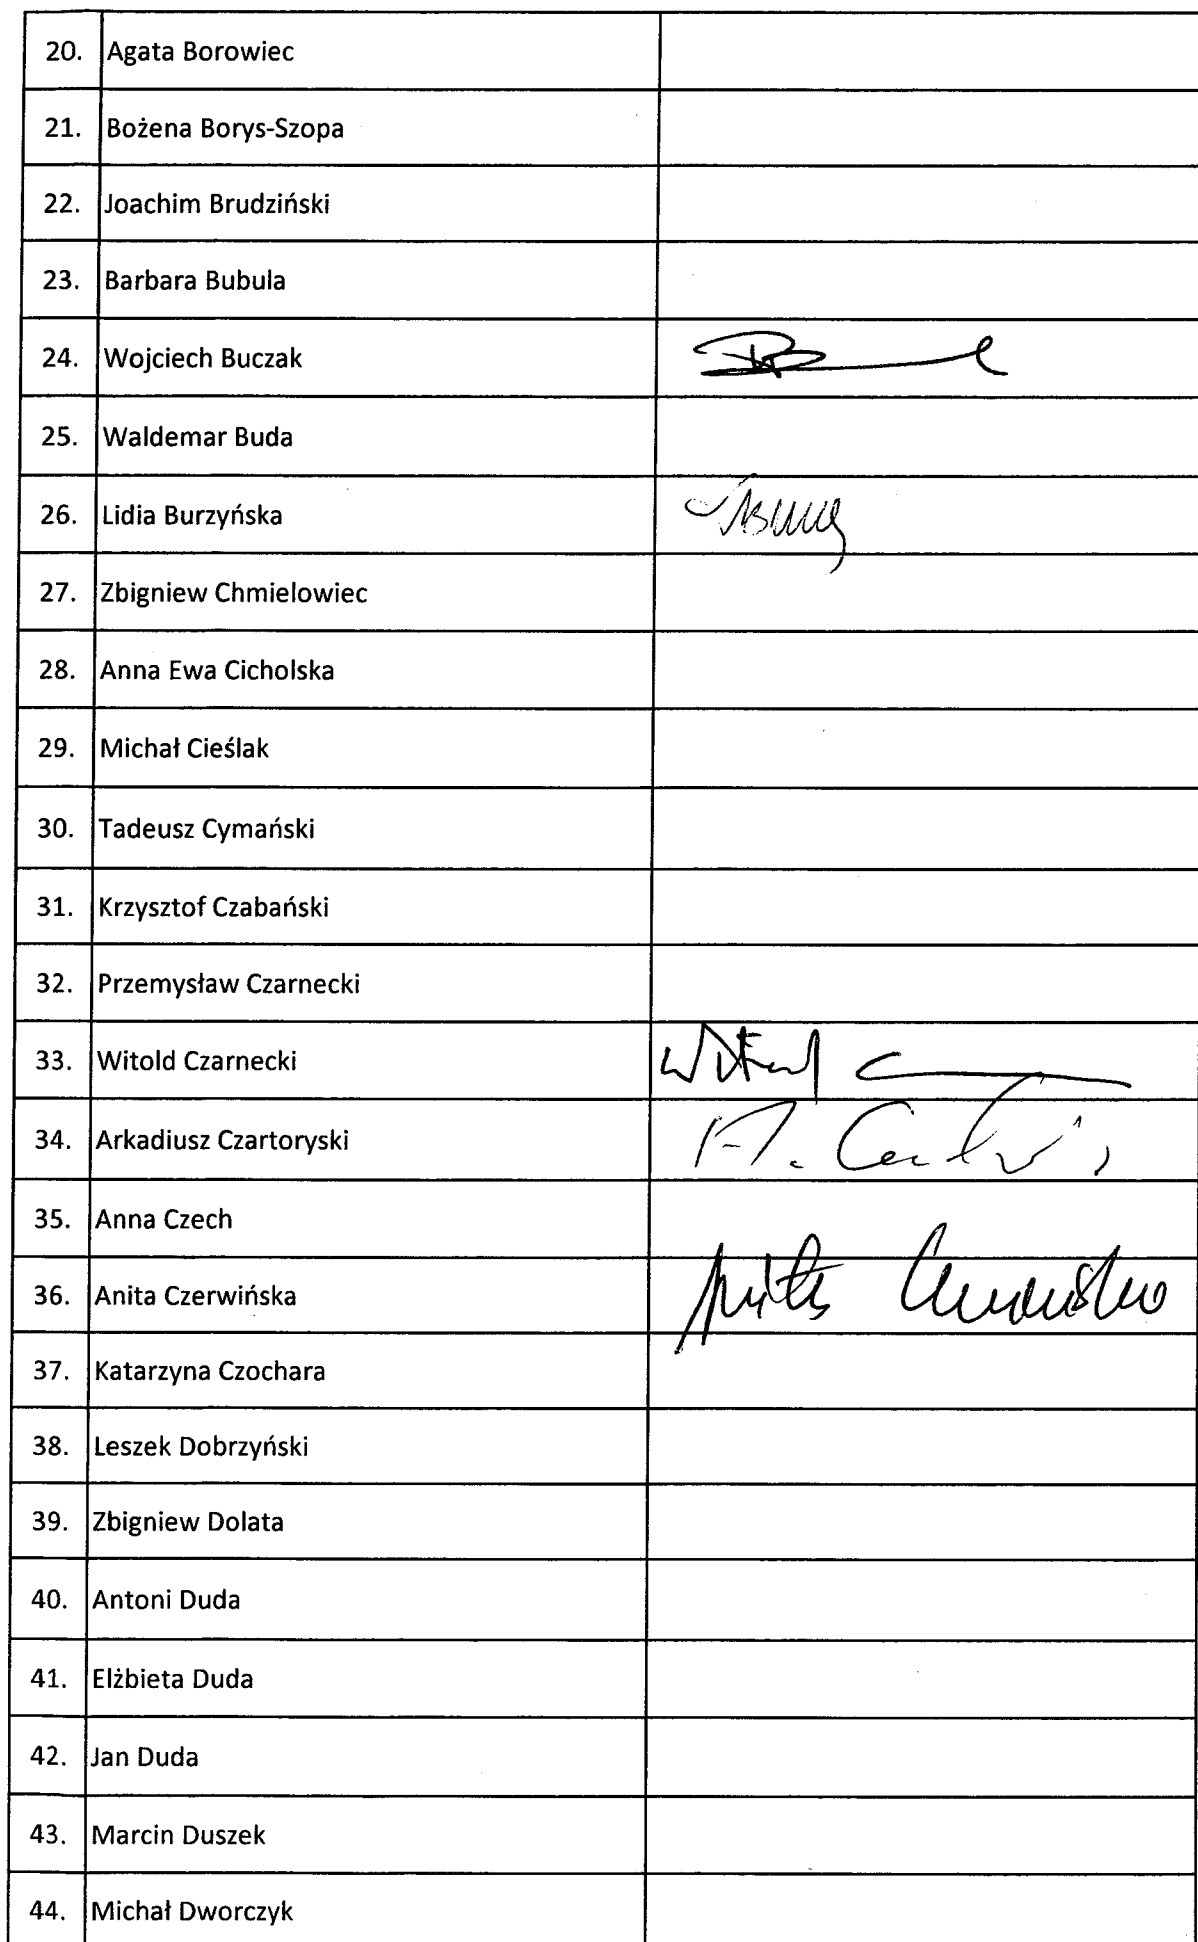 20. Agata Borowiec
21. Bożena Borys-Szopa
22. Joachim Brudziński
23. Barbara Bubula
24. Wojciech Buczak
25. Waldemar Buda
26. Lidia Burzyńska
27. Zbigniew Chmielowiec
28. Anna Ewa Cicholska
29. Michał Cieślak
30. Tadeusz Cymański
31. Krzysztof Czabański
32. Przemysław Czarnecki
33. Witold Czarnecki Witold
34. Arkadiusz Czartoryski
35. Anna Czech
36. Anita Czerwińska Anita Czerwińska
37. Katarzyna Czochara
38. Leszek Dobrzyński
39. Zbigniew Dolata
40. Antoni Duda
41. Elżbieta Duda
42. Jan Duda
43. Marcin Duszek
44. Michał Dworczyk